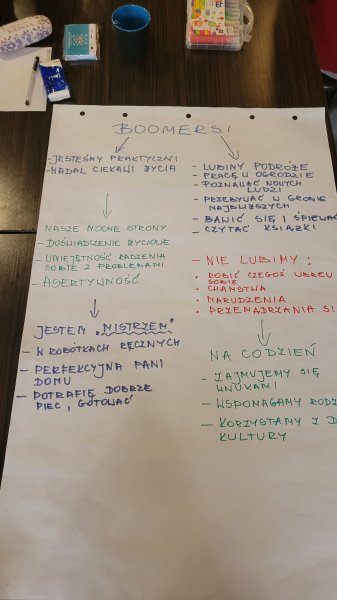 BOOMERSI
- JESTEŚMY PRAKTYCZNI
- NADAL CIEKAWI ŻYCIA
NASZE MOCNE STRONY
- DOŚWIADCZENIE ŻYCIOWE
- UMIEJĘTNOŚĆ RADZENIA
SOBIE Z PROBLEMAMI
- ASERTYWNOŚĆ
JESTEM „MISTRZEM"
- W ROBÓTKACH RĘCZNYCH
- PERFEKCYJNA PANI
DOMU
- POTRAFIĘ DOBRZE
PIEC, GOTOWAĆ
- LUBIMY PODRÓŻE
- PRACĘ W OGRODZIE
- POZNAWAĆ NOWYCH
LUDZI
- PRZEBYWAĆ W GRONIE
NAJBLIŻSZYCH
- BAWIĆ SIĘ I ŚPIEWAĆ
- CZYTAĆ KSIĄŻKI
- NIE LUBIMY :
• ROBIĆ CZEGOŚ WBREW
SOBIE
• CHAMSTWA
• MARUDZENIA
• PRZEMĄDRZANIA SI
NA CODZIEŃ
- ZAJMUJEMY SIĘ
WNUKAMI
- WSPOMAGAMY RODZ
- KORZYSTAMY Z D
KULTURY